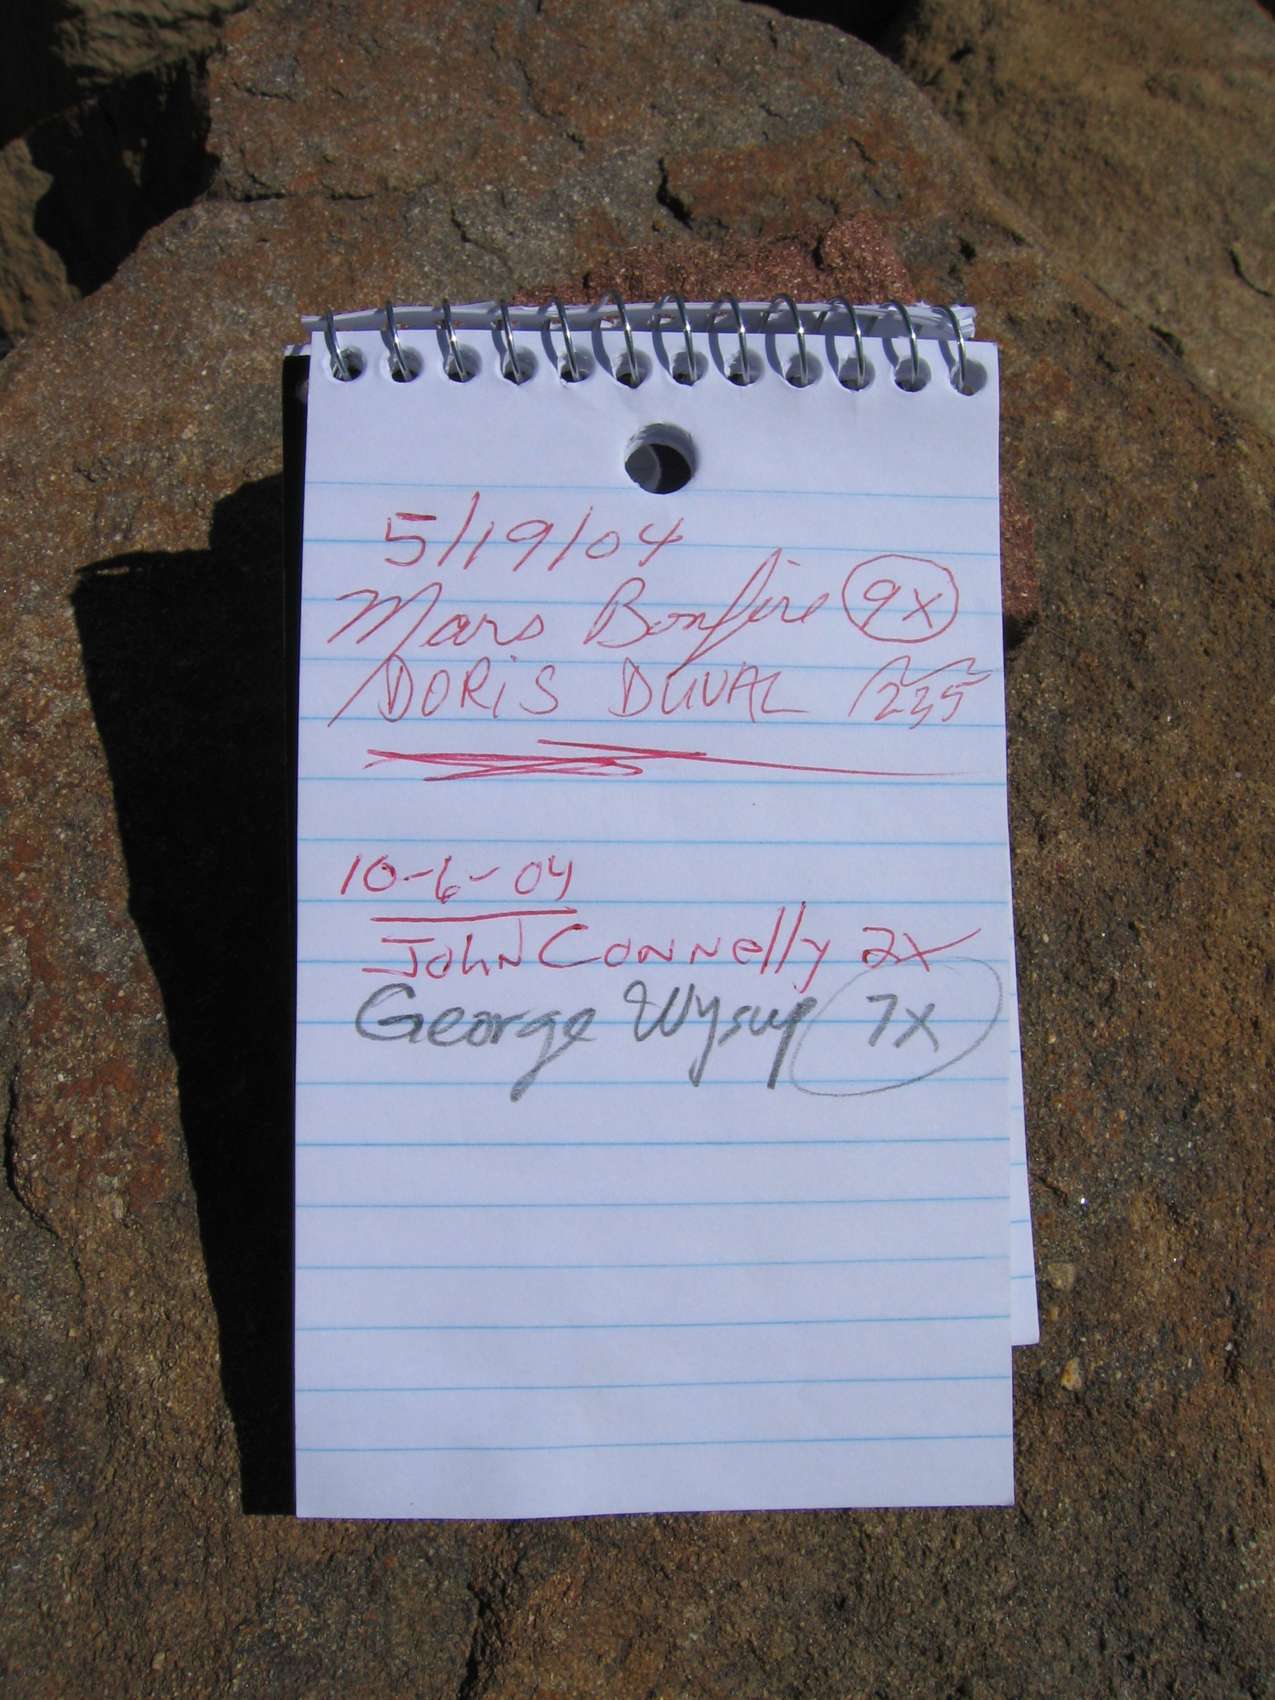 5/19/04
Mars Bonfire 9x
DORiS DUVAL 235
10-6-04
JohN CoNNelly 2x
George Wysup 7x